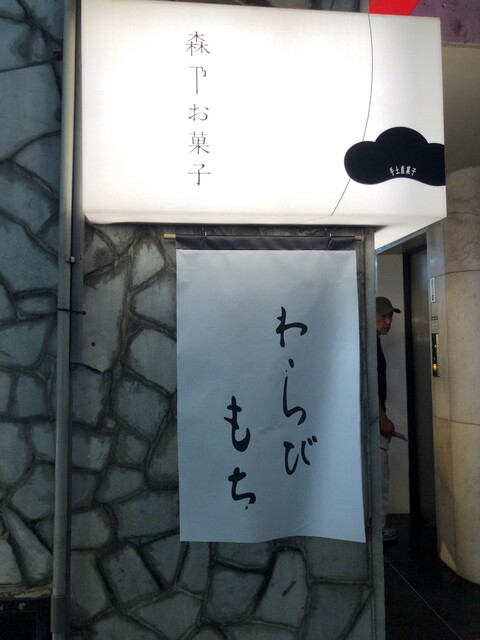 森乃お菓子
手土産菓子
わらび
もち